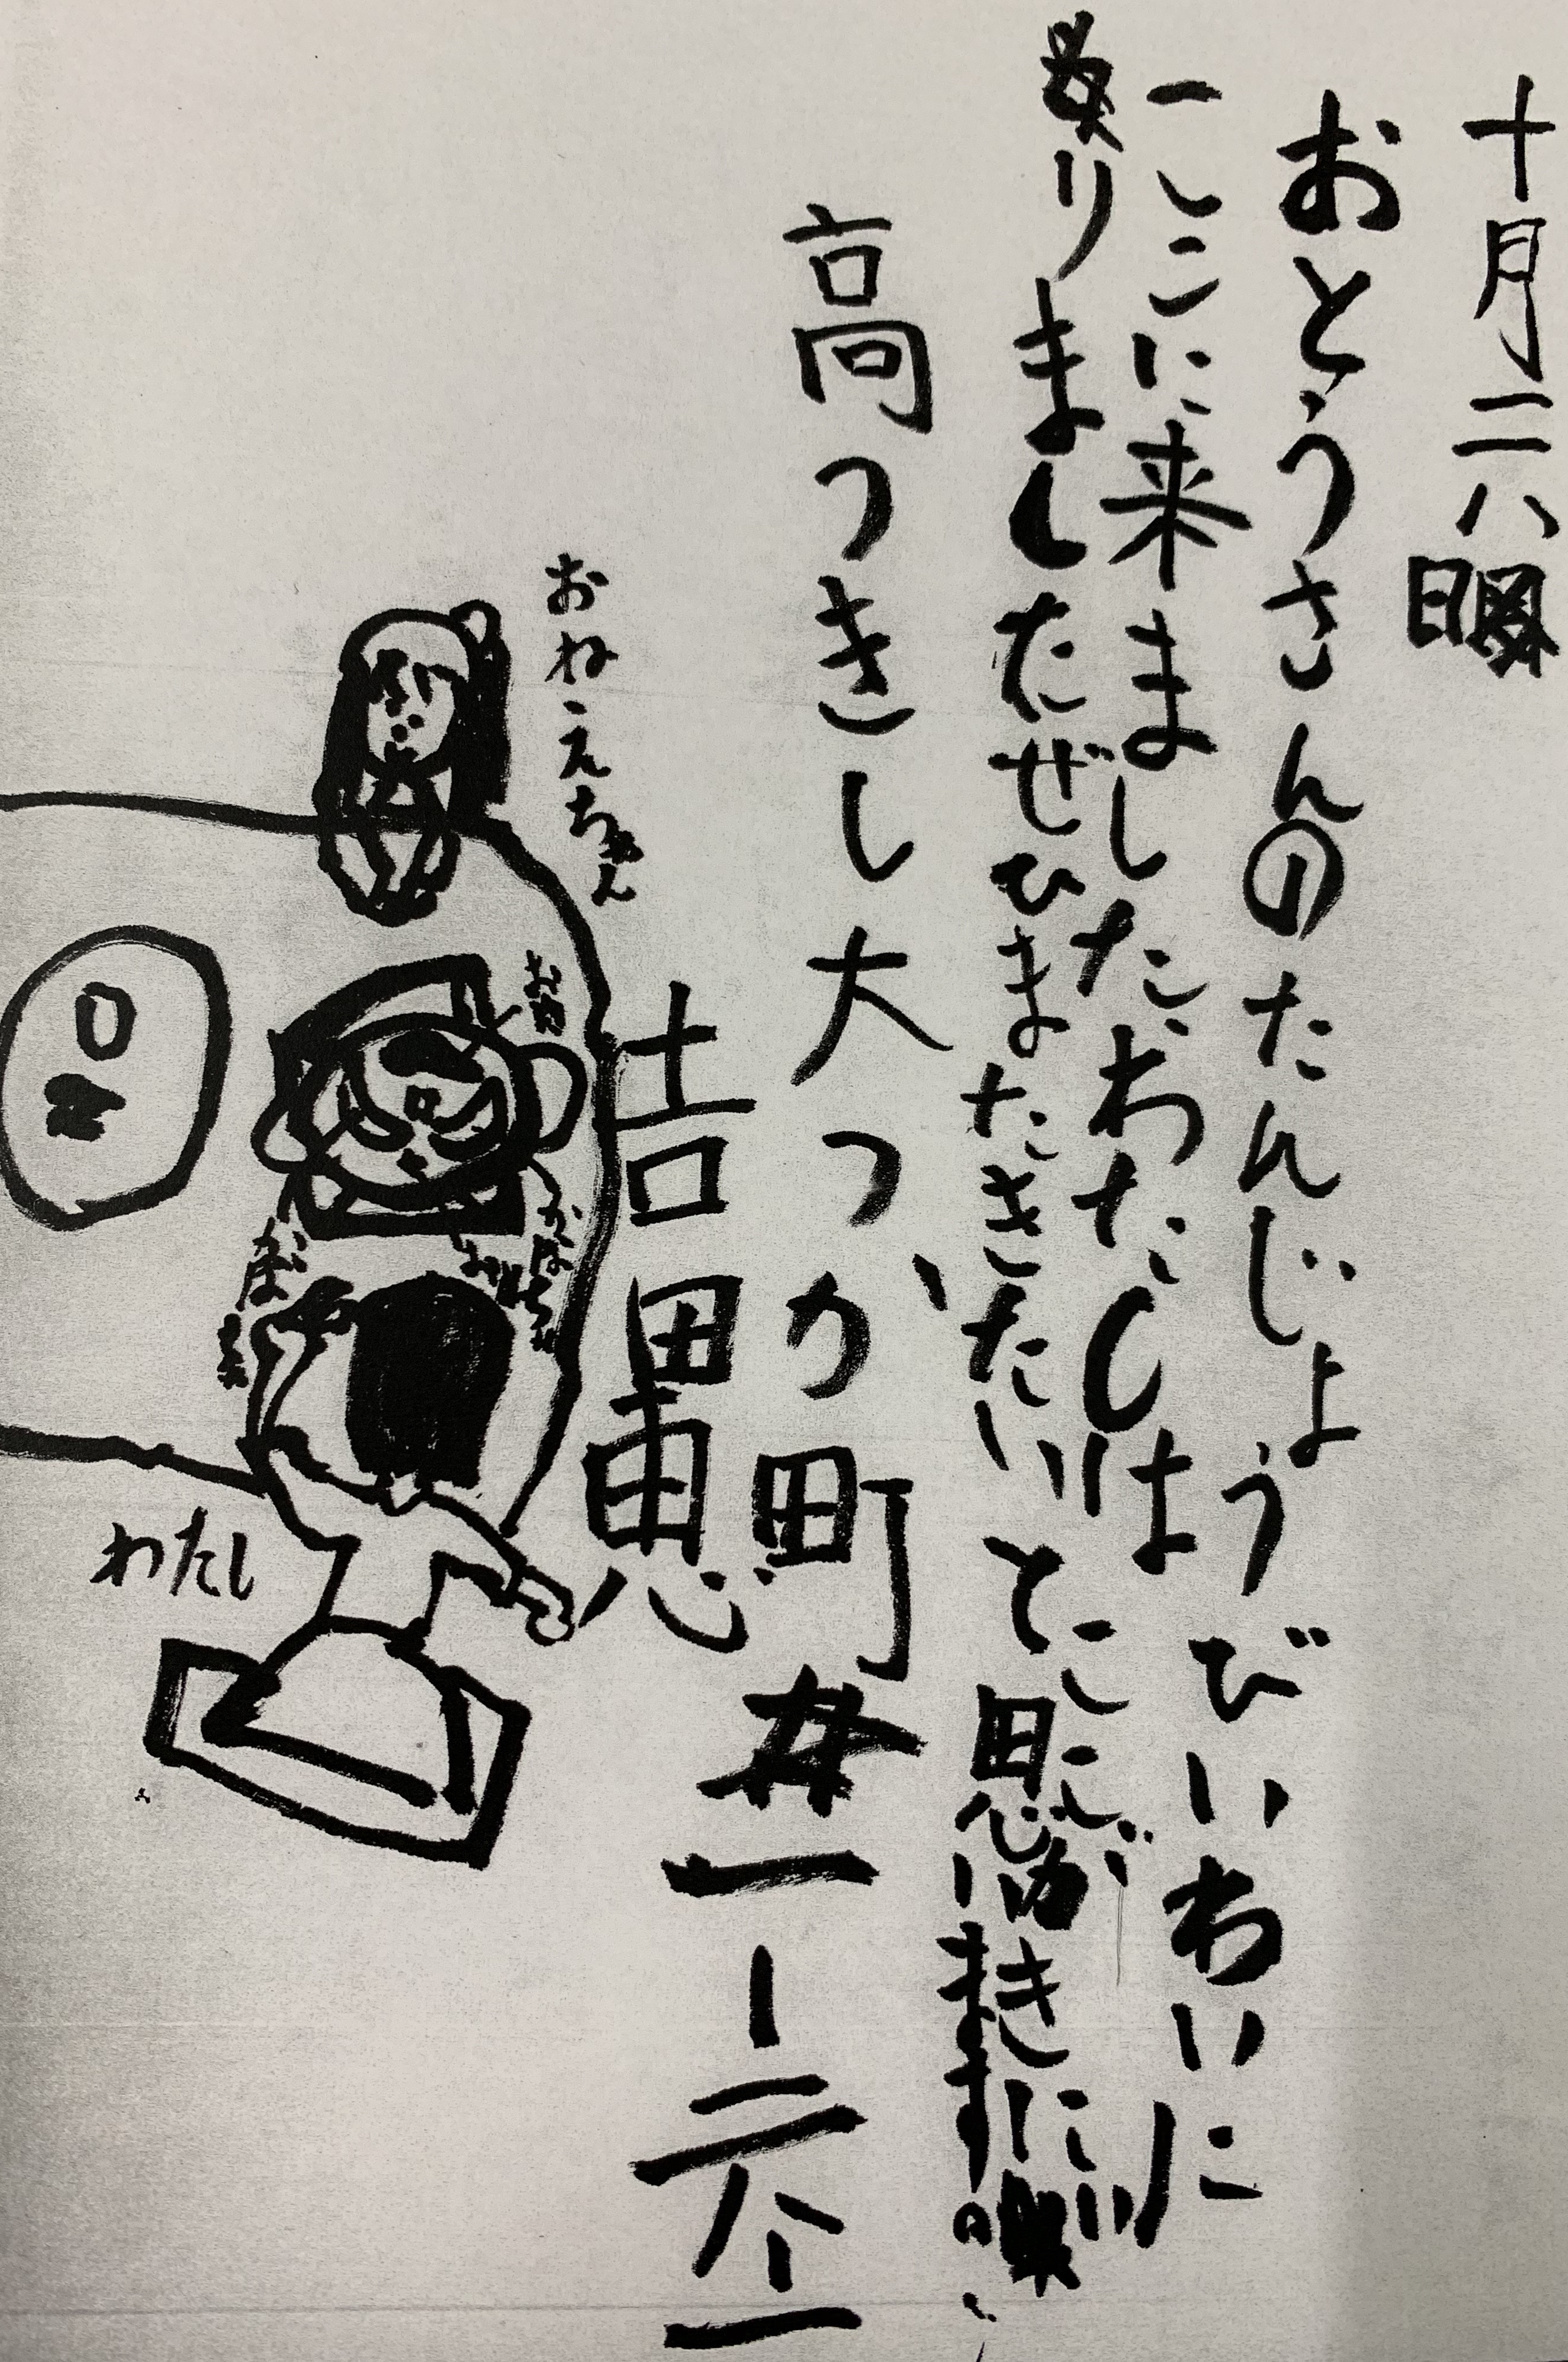 十月二八日
おとうさんのたんじょうびいわいに
一しこに来ました。わたしはここがきにい
りました。ぜひまたきたいと思います。
高つきし大つか町一ー二六ー一
吉田恵
おねえちゃん
わたし